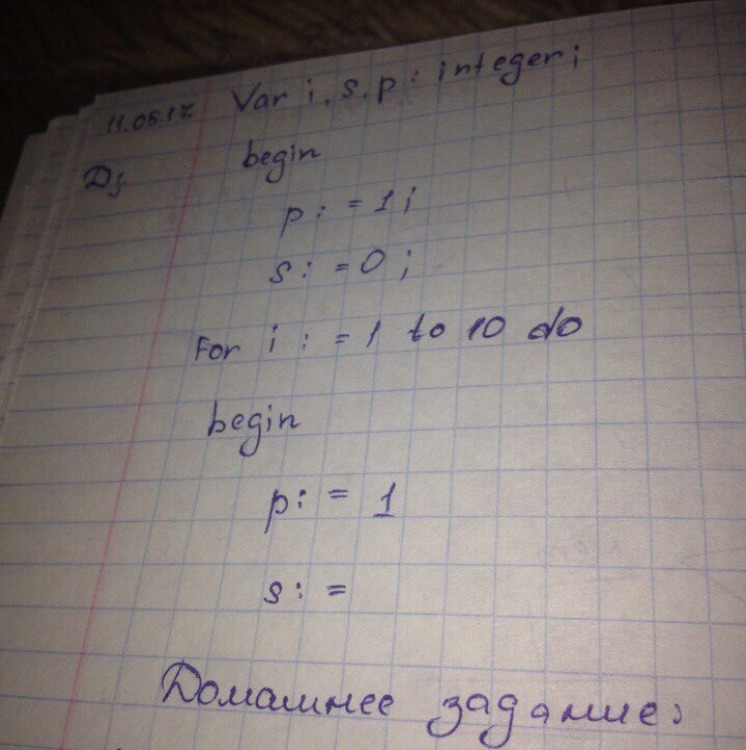 11.05.17 Var i, s, p : integer;
Дз begin
p : = 1 ;
s : = 0 ;
For i : = 1 to 10 do
begin
p : = 1
s : =
Домашнее задание: